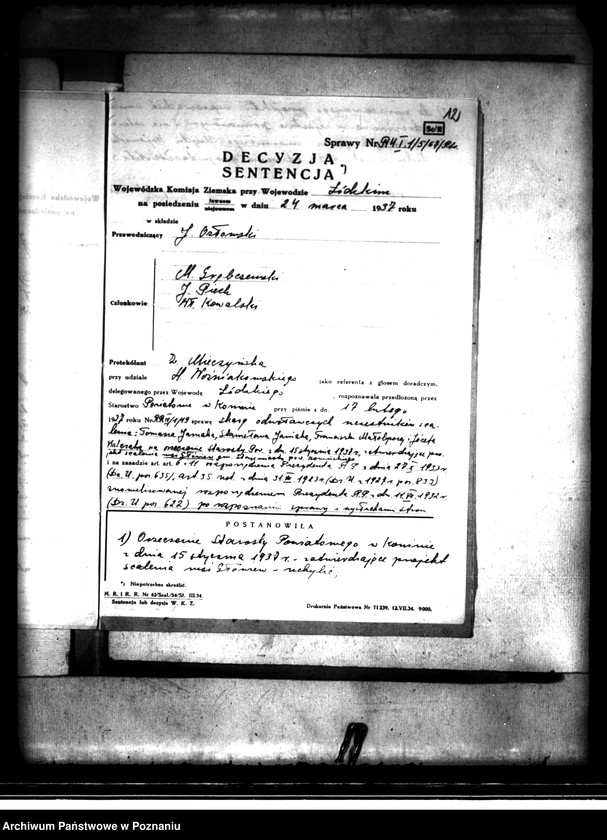 12
Sc/R
Sprawy Nr
DECYZJA
SENTENCJA *)
Wojewódzka Komisja Ziemska przy Wojewodzie Łódzkim
na posiedzeniu jawnem niejawnem w dniu 24 marca 1937 roku
w składzie
Przewodniczący J. Orłowski
J. Piech
Członkowie Kowalski
Protokólant Z. Mieczyńska
przy udziale H. Woźniakowskiego jako referenta z głosem doradczym,
delegowanego przez Wojewodę Łódzkiego, rozpoznawała przedłożoną przez
Starostwo Powiatowe w Koninie przy piśmie z dn. 17 lutego
1937 roku Nr sprawę skarg odwoławczych uczestników sca-
lenia: Tomasza Janiaka, Stanisława Janiaka, Franciszka i Józefa
na orzeczenie Starosty Pow. z dn. 15 stycznia 1937 r. zatwierdzające pro-
jekt scalenia wsi gm. pow. konińskiego
i na zasadzie art. art. 6 i 11 rozporządzenia Prezydenta R.P. z dnia 27 X 1933 r.
(Dz. U. poz. 635), art. 35 ust. z dnia 31 VII 1923 r. (Dz. U. z 1927 r. poz. 833)
znowelizowanej rozporządzeniem Prezydenta R.P. z dn. 11 VII 1932 r.
(Dz. U. poz. 622) po rozpoznaniu sprawy i wysłuchaniu stron
POSTANOWIŁA
1) Orzeczenie Starosty Powiatowego w Koninie
z dnia 15 stycznia 1937 r. zatwierdzające projekt
scalenia wsi - uchylić,
*) Niepotrzebne skreślić.
M. R. i R. R. Nr 63/Scal./54/53. III.34.
Sentencja lub decyzja W. K. Z.
Drukarnia Państwowa Nr 71339. 12.VII.34. 9000.
Archiwum Państwowe w Poznaniu